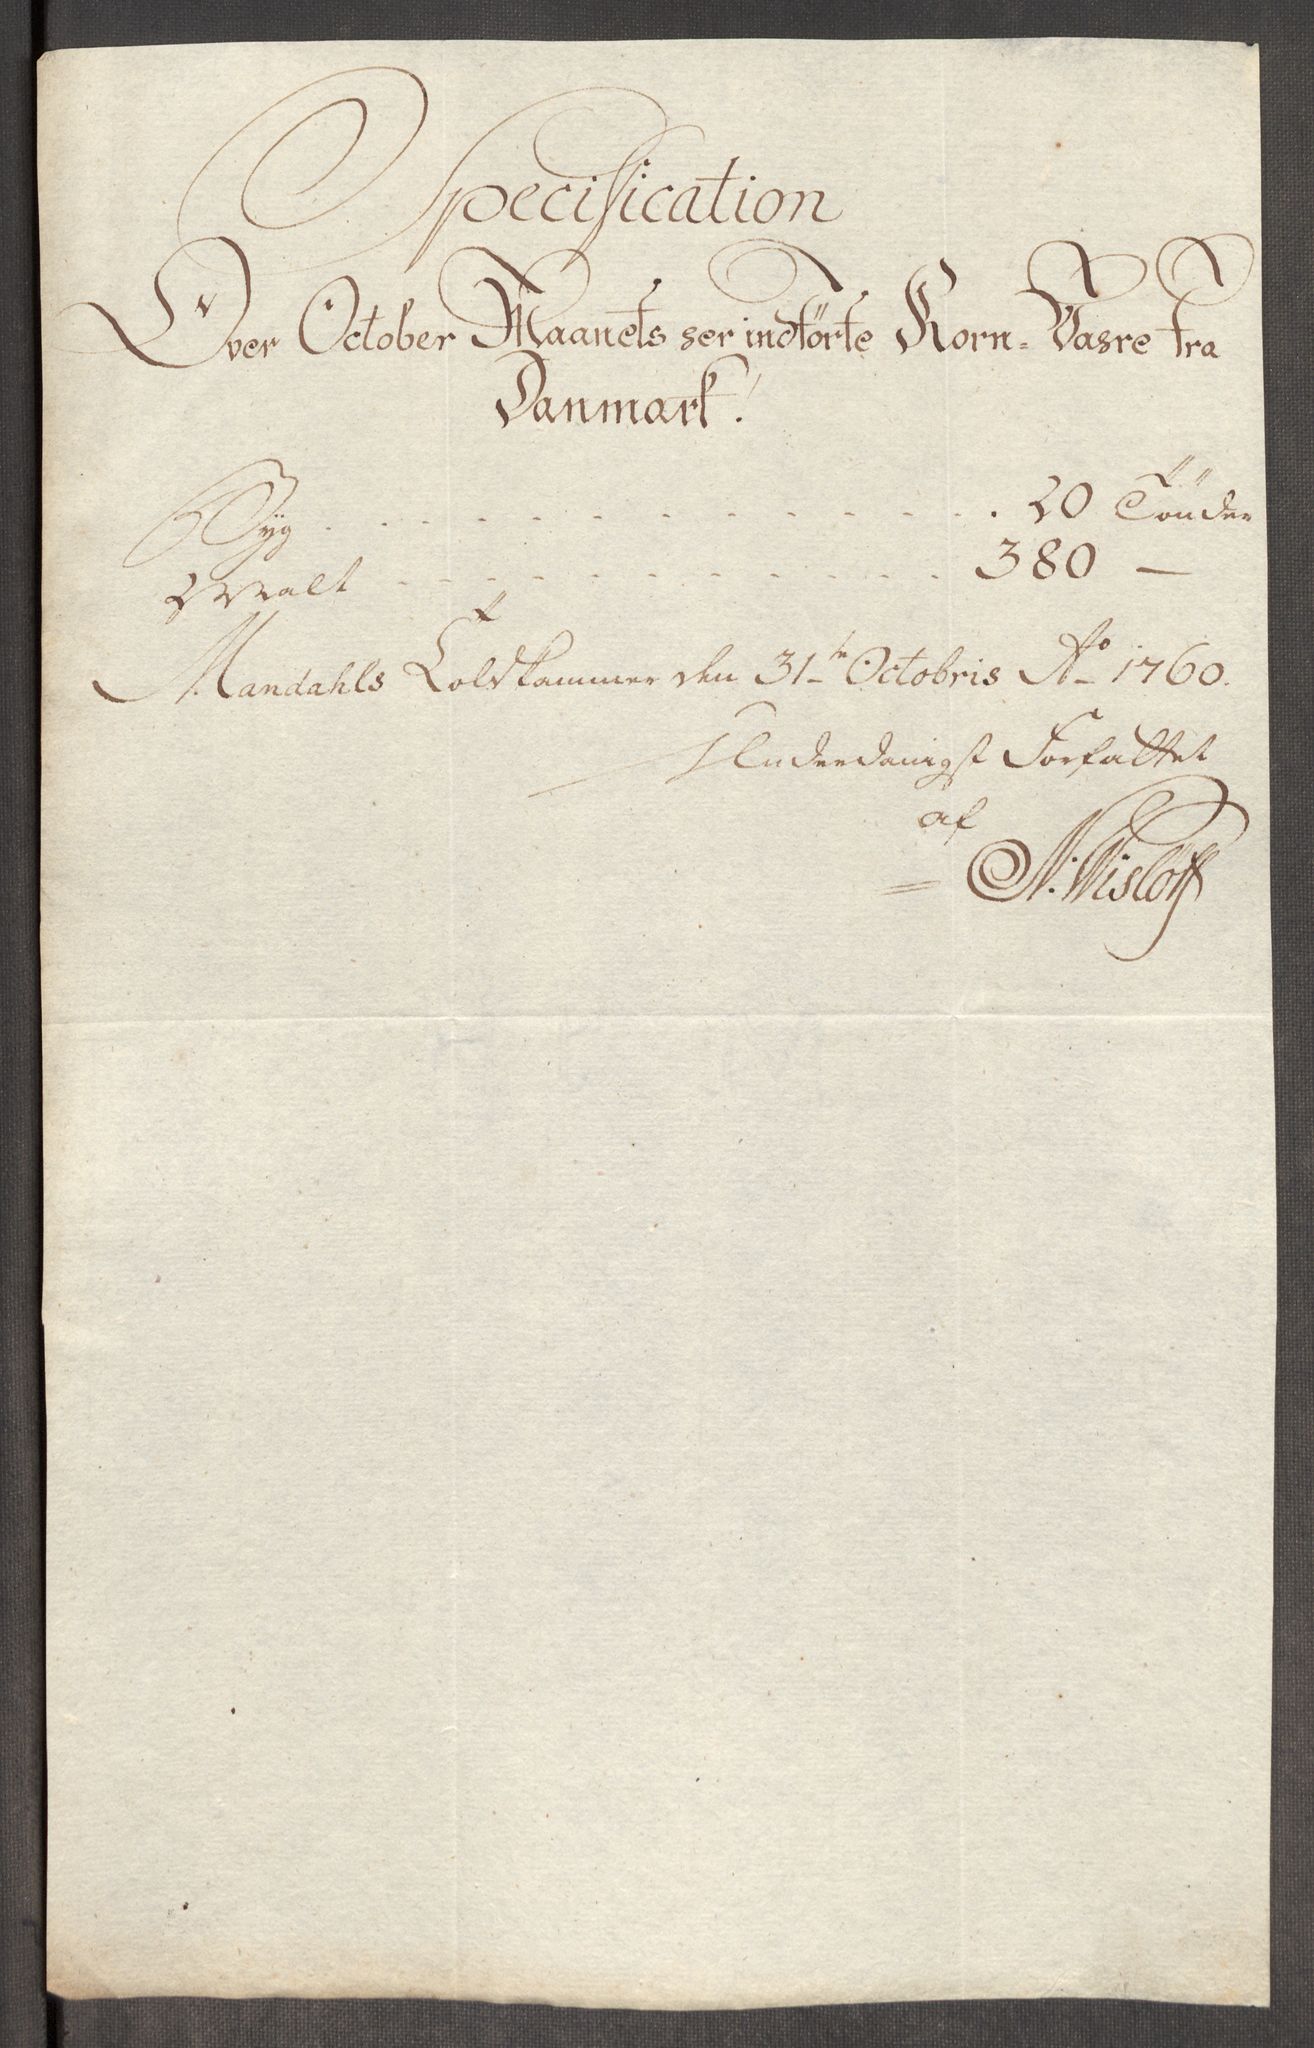 Specification
Over October Maanets her indförte Korn-Vahre fra
Danmark.
Byg . . . . . . . . . . . . . . . 20 Tönder
Malt . . . . . . . . . . . . . 380 —
Mandahls Toldkammer den 31te Octobris Ao 1760.
Underdanigst Forfattet
af
N: Wislöff